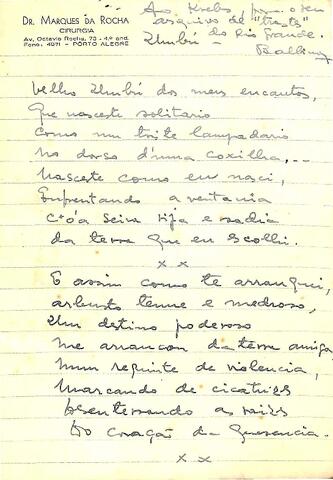 DR. MARQUES DA ROCHA
CIRURGIA
Av. Octavio Rocha, 73 - 4.º and.
Fone. 4971 - PORTO ALEGRE
Ao Krebs, para o seu
arquivo de "trastes"
Umbú do Rio Grande.
Velho Umbú dos meus encantos,
Que nasceste solitario
Como um triste lampadario
No dorso d'uma coxilha,...
Nasceste como eu naci,
Enfrentando a ventania
C'oa seiva rija e sadia
da terra que eu escolhi.
x x
E assim como te arranquei,
arbusto tenue e medroso,
Um destino poderoso
Me arrancou da terra amiga,
Num requinte de violencia,
Marcando de cicatrizes
Desenterrando as raizes
Do coração da Querencia.
x x